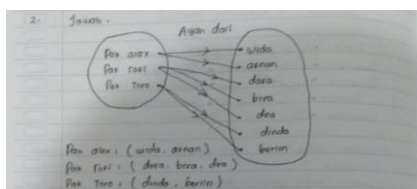 2. Jawab:
Ayah dari
Pak alex
Pak Tofi
Pak Toro
wida
arnan
dara
bera
dea
dinda
berlin
Pak alex : ( wida, arnan )
Pak Tofi : ( dara, bera, dea )
Pak Toro : ( dinda, berlin )